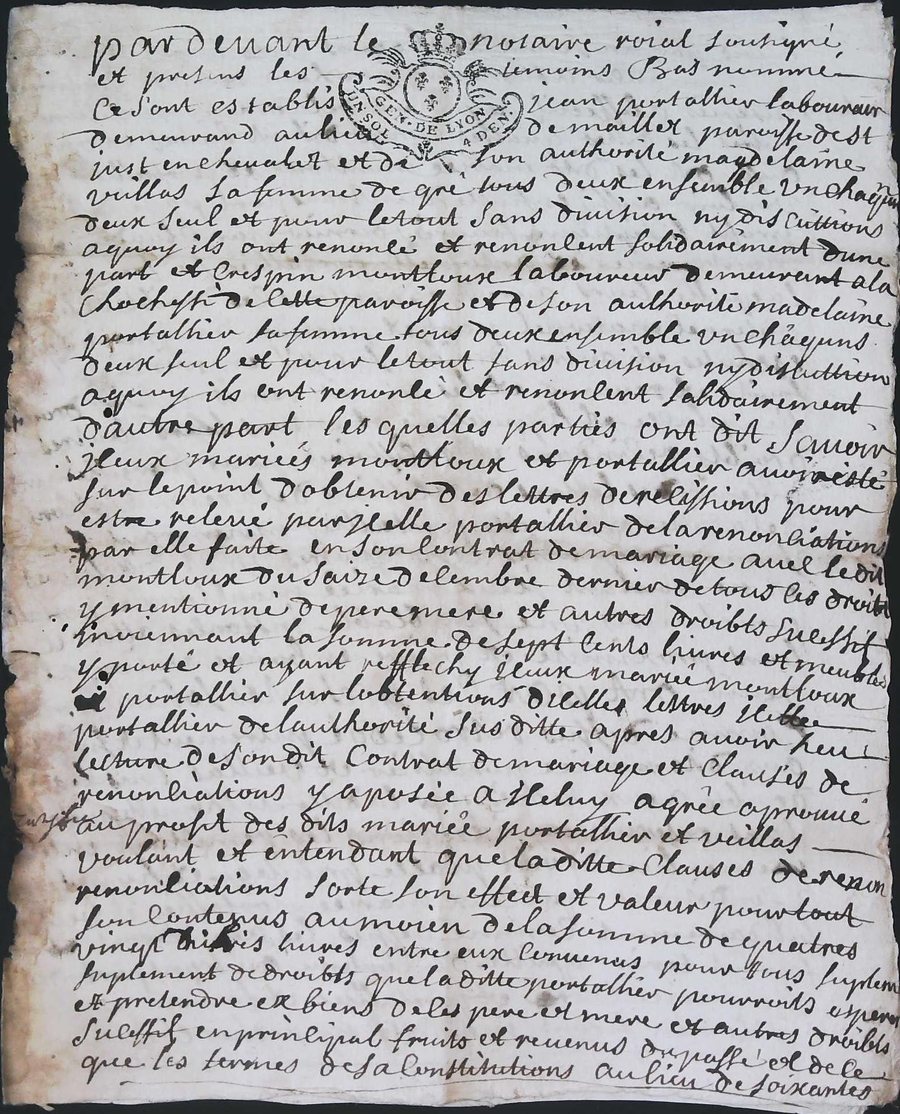 pardevant le notaire roial sousigné
et presens les temoins Bas nommé
Ce sont establis jean portallier laboureur
UN SOL GEN. DE LYON 4 DEN.
demeurand au lieu de maillet paroisse de st
just en chevalet et de son authorité magdelaine
veillas sa femme de gré tous deux ensemble un chaqun
deux seul et pour le tout sans division ny discuttions
aquoy ils ont renoncé et renoncent solidairement dune
part et Crespin montloux laboureur demeurant a la
de cette paroisse et de son authorité madelaine
portallier sa femme tous deux ensemble un chaquns
deux seul et pour le tout sans division ny discuttion
aquoy ils ont renoncé et renoncent solidairement
dautre part les quelles parties ont dit scavoir
jceux mariés montloux et portallier avoir esté
sur le point dobtenir des lettres de recissions pour
estre relevé par jcelle portallier de la renonciations
par elle faite en son Contrat de mariage avec le dit
montloux du saize decembre dernier de tous les droits
y mentionné de pere mere et autres droibts sucessif
moiennant la somme de sept cents livres et meubles
y porté et ayant refflechy jceux mariés montloux
et portallier sur lobtentions dicelles lettres jcelle
portallier de lauthorité sus ditte apres avoir heu
lecture de son dit Contrat de mariage et Clauses de
renonciations y aposée a jceluy agrée aprouvé
au profit des dits mariée portallier et veillas
voulant et entendant que la ditte Clauses de renon
renonciations sorte son effect et valeur pour tout
son contenus au moien de la somme de quatres
vingt livres entre eux convenus pour tous suplem
suplement de droibts que la ditte portallier pourroits esperer
et pretendre ex biens de ces pere et mere et autres droibts
sucessif en principal fruits et revenus du passé et de ce
que les termes de sa Constitutions au lieu de soixantes